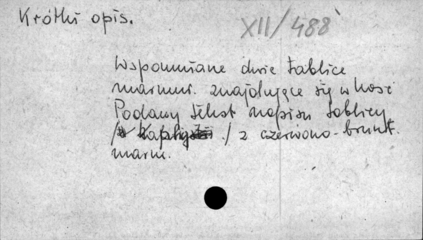 Krótki opis.
XII/488
Wspomniane dwie tablice
marmur. znajdujące się w kość
Podany tekst napisu tablicy
/ z czerwono-brunt.
marm.